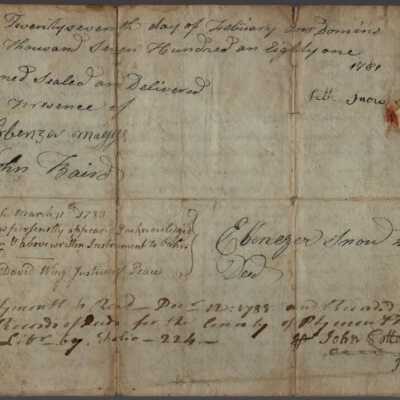 Twentyseventh day of February Ano Domini
Thousand Seven Hundred an Eighty one
1781
ned Sealed an Delivered
Presence of
Seth Snow
Ebenezer
John Baird
March 11th 1783
personally appeard acknowledged
above written Instrument to be his
David Wing Justice of Peace
Ebenezer Snow
Deed
lymouth ss Recd Decr 12: 1788 and Recorded
Records of Deeds for the County of Plymouth
Libr 69. Folio 224
pr John Cotton